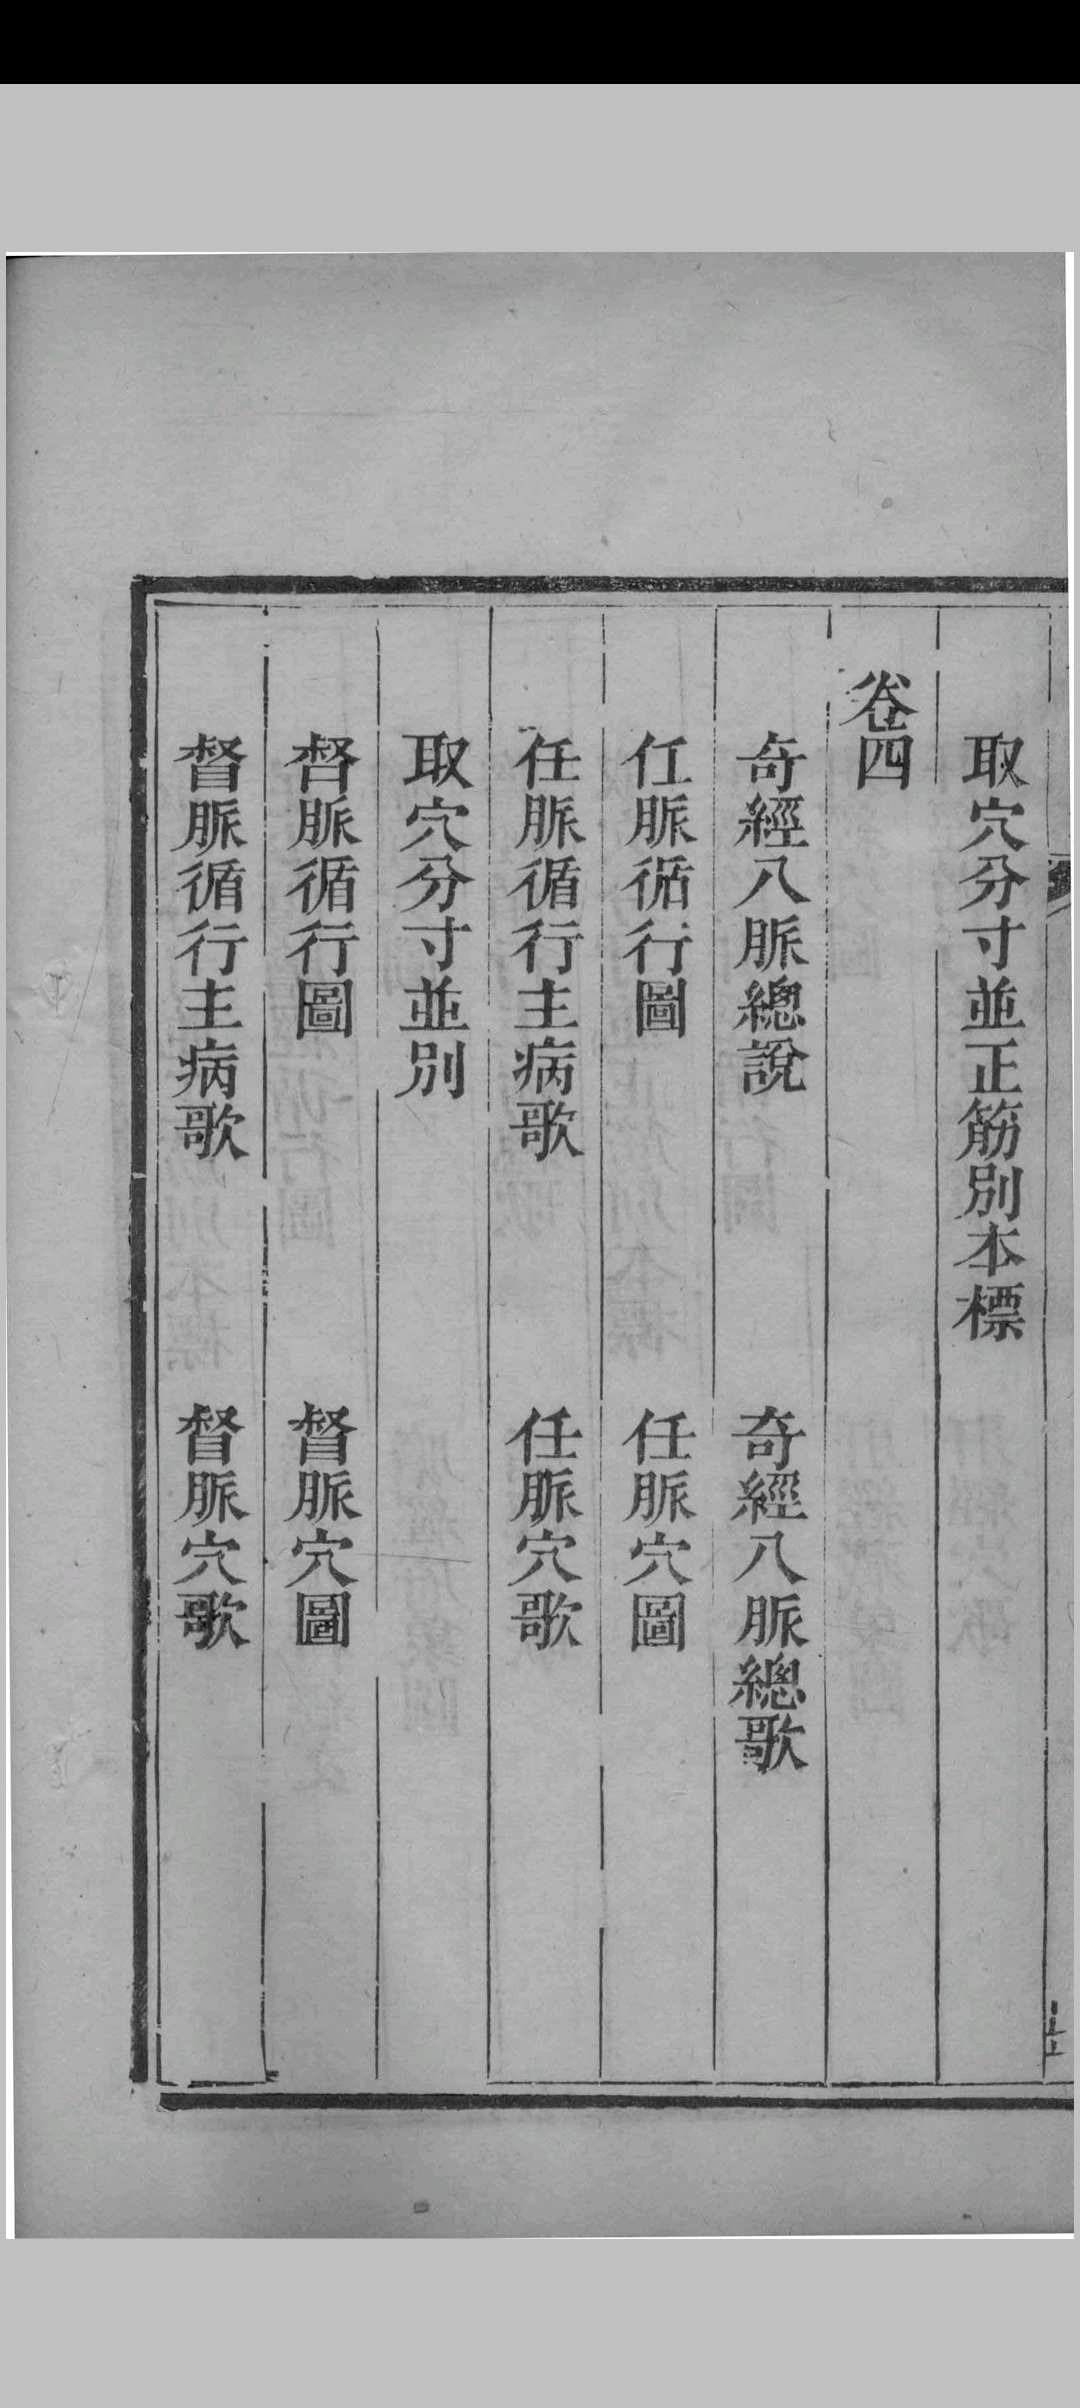 取穴分寸並正筋別本標
卷四
奇經八脈總說 奇經八脈總歌
任脈循行圖 任脈穴圖
任脈循行主病歌 任脈穴歌
取穴分寸並別
督脈循行圖 督脈穴圖
督脈循行主病歌 督脈穴歌